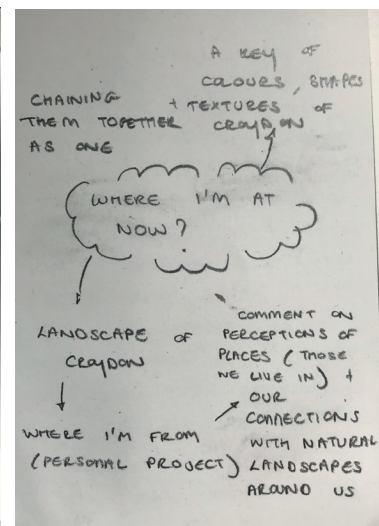 A KEY OF
COLOURS, SHAPES
+ TEXTURES OF
CROYDON
CHAINING
THEM TOGETHER
AS ONE
WHERE I'M AT
NOW?
LANDSCAPE OF
CROYDON
WHERE I'M FROM
(PERSONAL PROJECT)
COMMENT ON
PERCEPTIONS OF
PLACES (THOSE
WE LIVE IN) +
OUR
CONNECTIONS
WITH NATURAL
LANDSCAPES
AROUND US